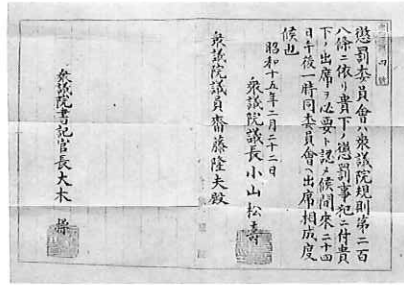 懲罰委員會ハ衆議院規則第二百
八條ニ依リ貴下ノ懲罰事犯ニ付貴
下ノ出席ヲ必要ト認メ候間來二十四
日午後一時同委員會ヘ出席相成度
候也
昭和十五年二月二十二日
衆議院議長小山松壽
衆議院議員齋藤隆夫殿
衆議院書記官長大木操